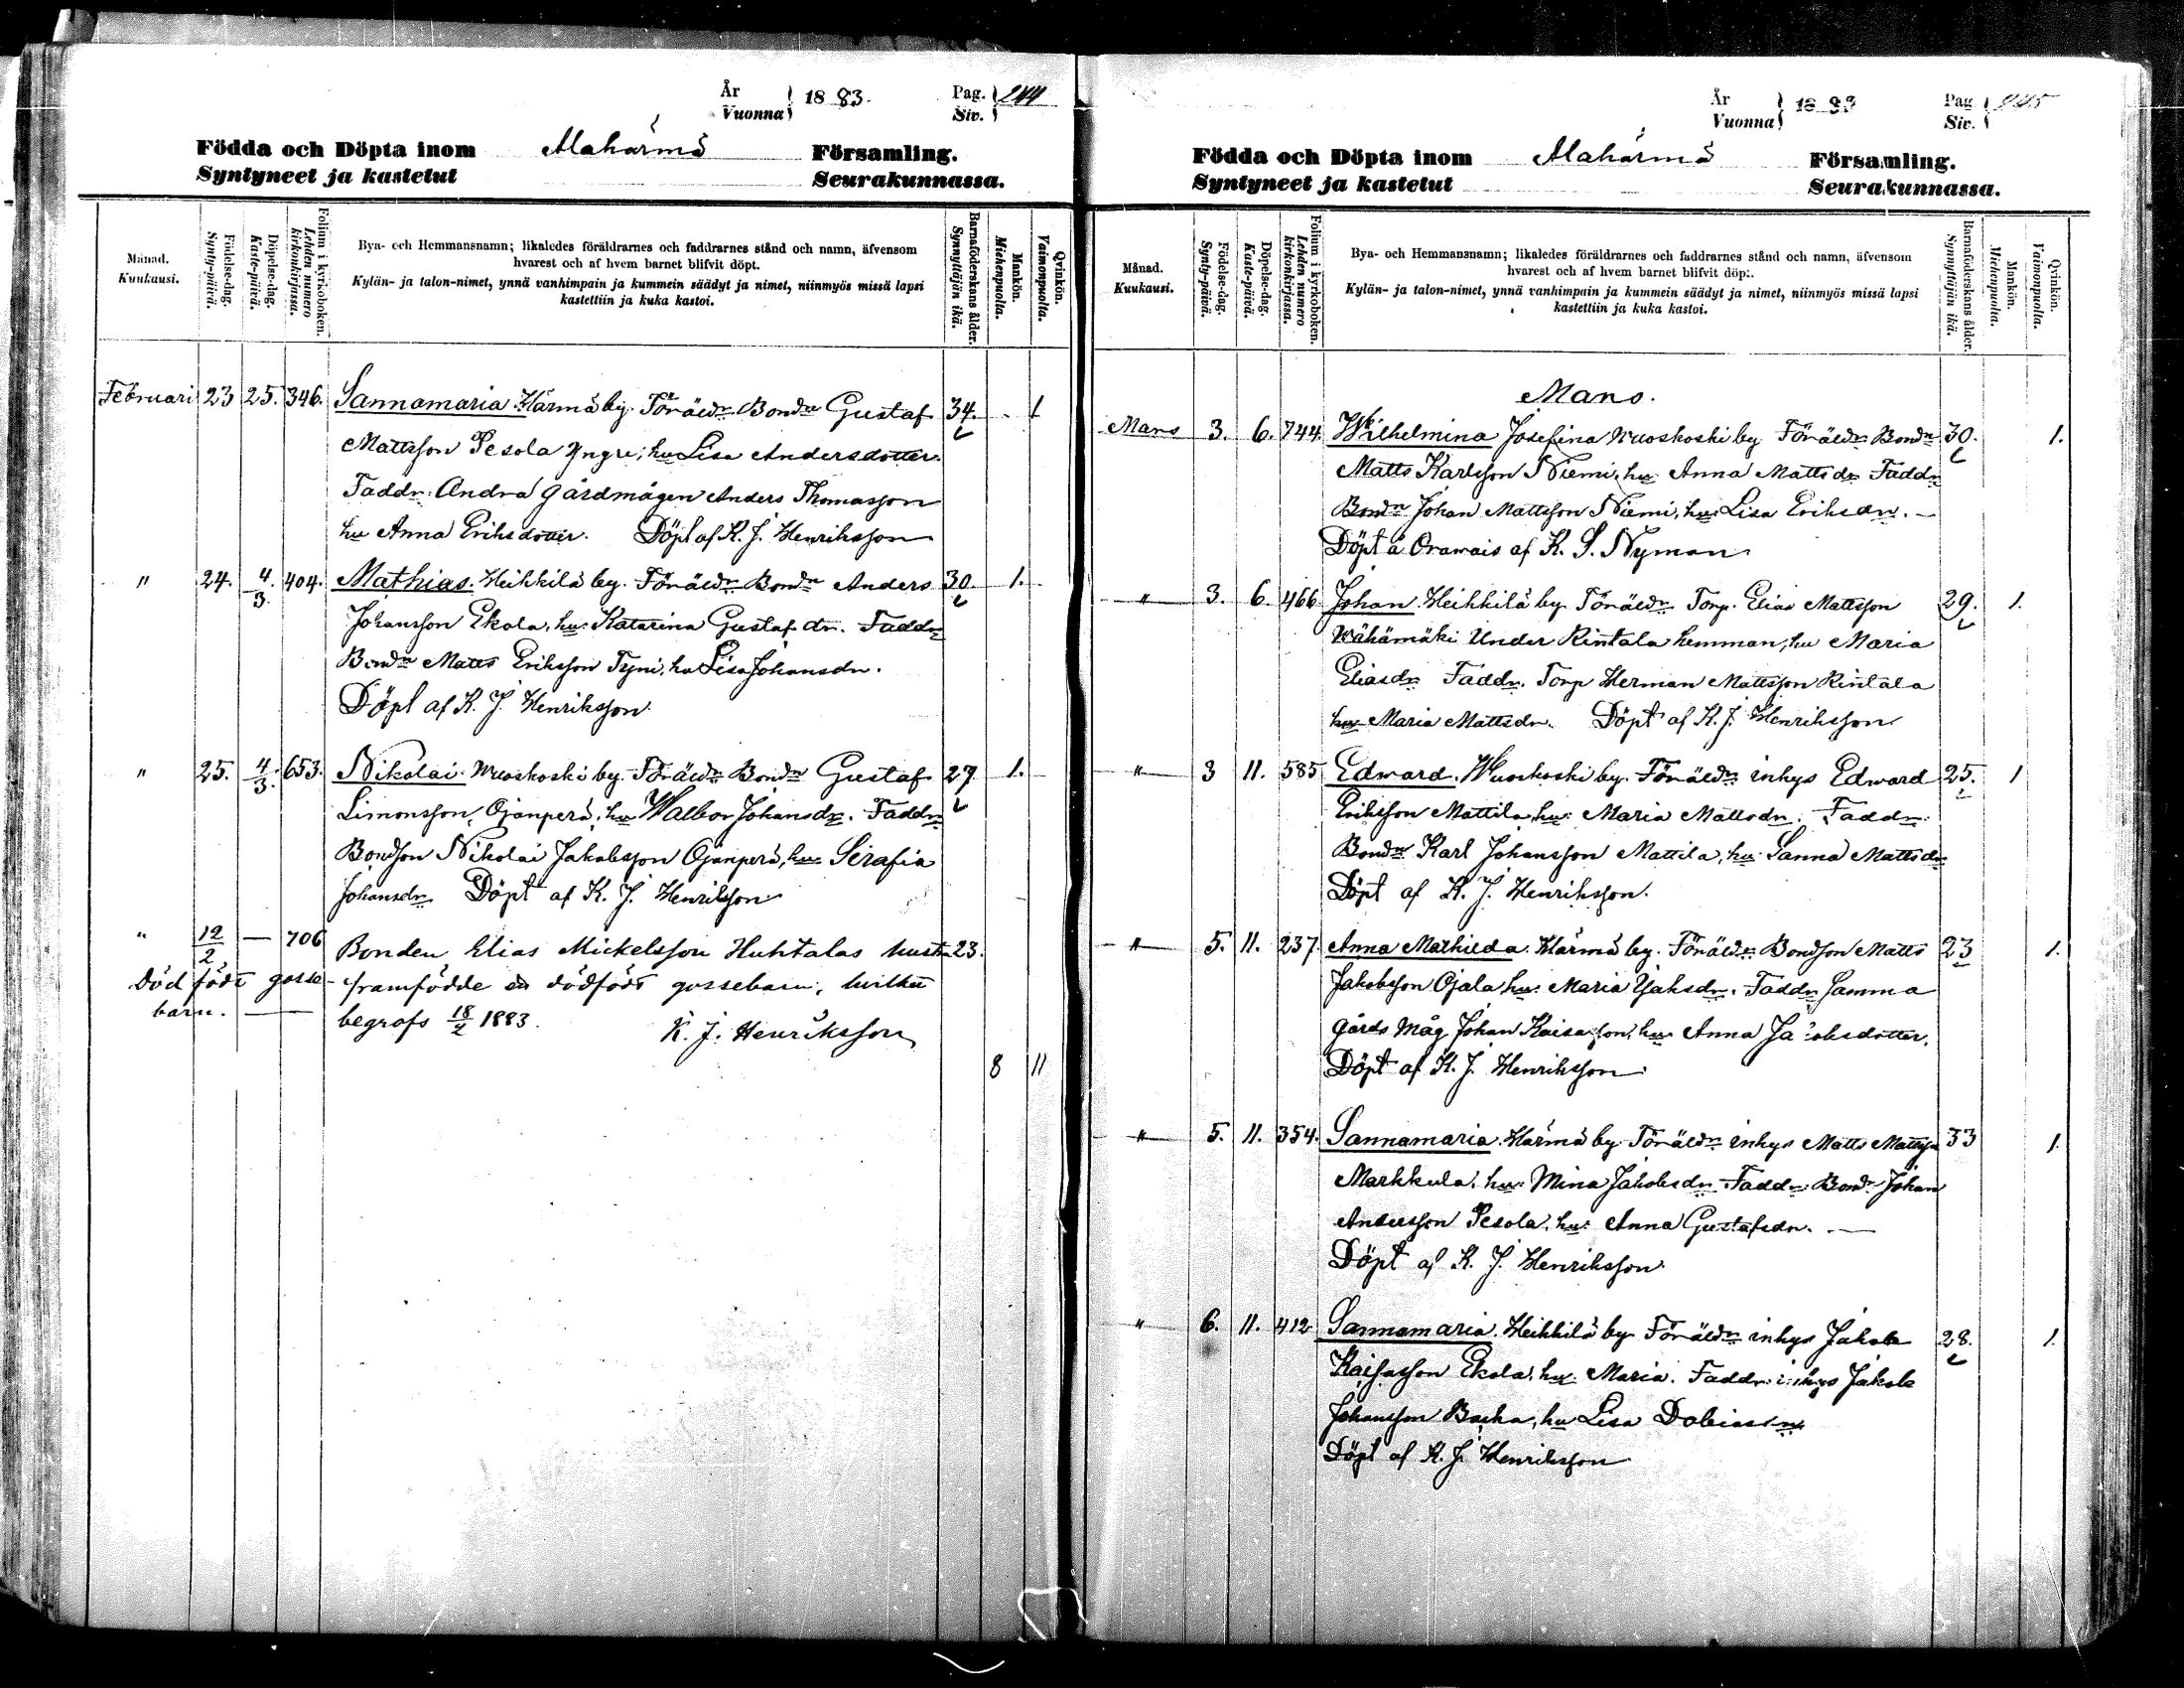 År
Vuonna
1883.
Pag.
Siv.
244
Födda och Döpta inom Alahärmä Församling.
Syntyneet ja kastetut Seurakunnassa.
Månad.
Kuukausi.
Födelse-dag.
Synty-päivä.
Döpelse-dag.
Kaste-päivä.
Folium i kyrkoboken.
Lehden numero kirkonkirjassa.
Bya- och Hemmansnamn; likaledes föräldrarnes och faddrarnes stånd och namn, äfvensom
hvarest och af hvem barnet blifvit döpt.
Kylän- ja talon-nimet, ynnä vanhimpain ja kummein säädyt ja nimet, niinmyös missä lapsi
kastettiin ja kuka kastoi.
Barnaföderskans ålder.
Synnyttäjän ikä.
Mankön.
Miehenpuolia.
Qvinkön.
Vaimonpuolia.
Februari 23 25. 346. Sannamaria Härmä by. Föräldr Bondn Gustaf 34. 1
Mattsson Pesola Yngre, hu Lisa Andersdotter.
Faddr. Andra gårdmågen Anders Thomasson
hu Anna Eriksdotter. Döpt af K. J. Henriksson
" 24. 4/3. 404. Mathias. Heikkilä by. Föräldr Bondn Anders 30. 1.
Johansson Ekola, hu. Katarina Gustafdr. Faddr
Bondn Matts Eriksson Tyni, hu Lisa Johansdr.
Döpt af K. J. Henriksson.
" 25. 4/3. 653. Nikolai. Wuoskoski by. Föräldr Bondn Gustaf 27 1.
Simonsson, Ojanperä, hu Walbor Johansdr. Faddr
Bondson Nikolai Jakobsson Ojanperä, hu Serafia
Johansdr. Döpt af K. J. Henriksson
" 12/2 — 706 Bonden Elias Mickelsson Huhtalas hustru 23.
Död född gosse- framfödde ett dödfödt gossebarn, hvilket
barn. begrofs 18/2 1883. K. J. Henriksson
8 11
År
Vuonna
1883
Pag
Siv.
245
Födda och Döpta inom Alahärmä Församling.
Syntyneet ja kastetut Seurakunnassa.
Månad.
Kuukausi.
Födelse-dag.
Synty-päivä.
Döpelse-dag.
Kaste-päivä.
Folium i kyrkoboken.
Lehden numero kirkonkirjassa.
Bya- och Hemmansnamn; likaledes föräldrarnes och faddrarnes stånd och namn, äfvensom
hvarest och af hvem barnet blifvit döpt.
Kylän- ja talon-nimet, ynnä vanhimpain ja kummein säädyt ja nimet, niinmyös missä lapsi
kastettiin ja kuka kastoi.
Barnaföderskans ålder.
Synnyttäjän ikä.
Mankön.
Miehenpuolia.
Qvinkön.
Vaimonpuolia.
Mars.
Mars 3. 6. 744. Wilhelmina Josefina Wuoskoski by Föräldr Bondn 30. 1.
Matts Karlsson Niemi, hu Anna Mattsdr Faddr
Bondn Johan Mattsson Niemi, hu. Lisa Eriksdr. —
Döpt å Orawais af K. S. Nyman
" 3. 6. 466 Johan Heikkilä by Föräldr Torp. Elias Mattsson 29. 1.
Wähämäki Under Rintala hemman, hu Maria
Eliasdr Faddr. Torp Herman Mattsson Rintala
hu Maria Mattsdr. Döpt af K. J. Henriksson
" 3 11. 585 Edward. Wuoskoski by. Föräldr inhys Edward 25. 1
Eriksson Mattila, hu. Maria Mattsdr. Faddr.
Bondn Karl Johansson Mattila, hu. Sanna Mattsdr
Döpt af K. J. Henriksson.
" 5. 11. 237. Anna Mathilda. Härmä by. Föräldr Bondson Matts 23 1.
Jakobsson Ojala hu. Maria dr. Faddr Samma
gårds måg Johan Kaisasson, hu Anna Jakobsdotter.
Döpt af K. J. Henriksson
" 5. 11. 354. Sannamaria. Härmä by Föräldr inhys Matts Mattsson 33 1.
Markkula, hu. Mina Jakobsdr Faddr. Bondn Johan
Andersson Pesola, hu. Anna Gustafsdr. —
Döpt af K. J. Henriksson
" 6. 11. 412 Sannamaria. Heikkilä by Föräldr inhys Jakob 28. 1.
Kaisasson Ekola, hu. Maria. Faddr. inhys Jakob
Johansson Backa, hu Lisa
Döpt af K. J. Henriksson